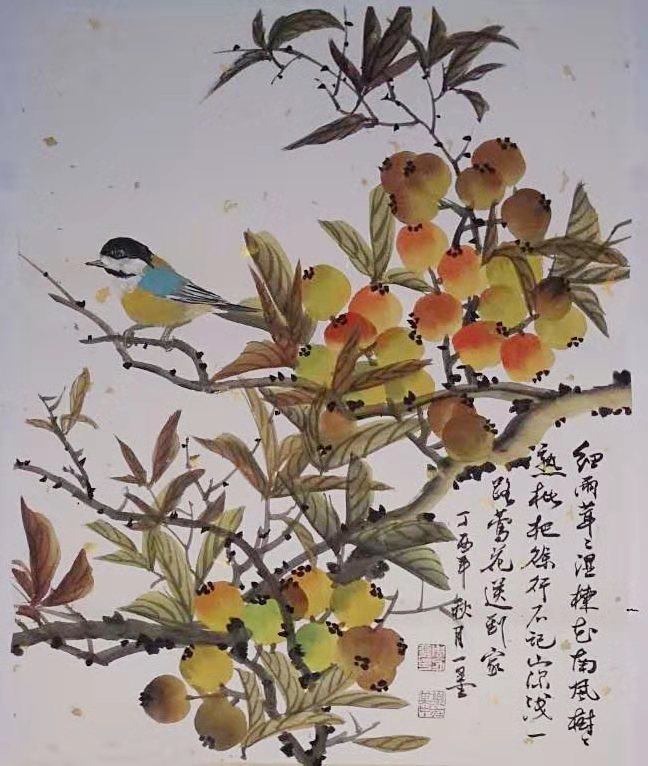 細雨茸〻湿楝花南風樹〻
熟枇杷徐行不记山深浅一
路莺花送到家
丁酉年秋月一墨